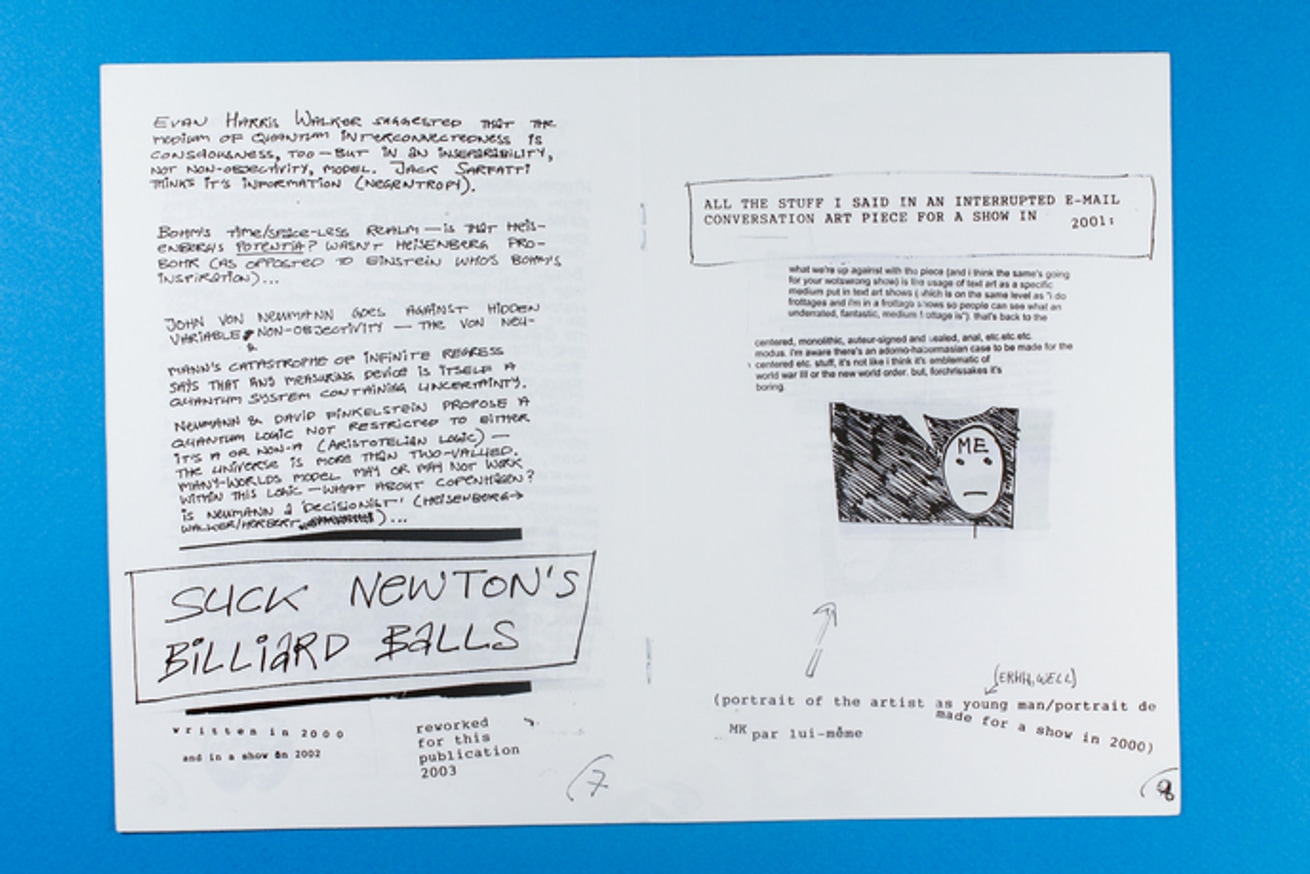 EVAN HARRIS WALKER SUGGESTED THAT THE
MEDIUM OF QUANTUM INTERCONNECTEDNESS IS
CONSCIOUSNESS, TOO — BUT IN AN INSEPARABILITY,
NOT NON-OBJECTIVITY, MODEL. JACK SARFATTI
THINKS IT'S INFORMATION (NEGENTROPY).
BOHM'S TIME/SPACE-LESS REALM — IS THAT HEIS-
ENBERG'S POTENTIA? WASN'T HEISENBERG PRO-
BOHR (AS OPPOSTED TO EINSTEIN WHO'S BOHM'S
INSPIRATION)...
JOHN VON NEUMANN GOES AGAINST HIDDEN
VARIABLE & NON-OBJECTIVITY — THE VON NEU-
MANN'S CATASTROPHE OF INFINITE REGRESS
SAYS THAT ANY MEASURING DEVICE IS ITSELF A
QUANTUM SYSTEM CONTAINING UNCERTAINTY.
NEUMANN & DAVID FINKELSTEIN PROPOSE A
QUANTUM LOGIC NOT RESTRICTED TO EITHER
IT'S A OR NON-A (ARISTOTELIAN LOGIC) —
THE UNIVERSE IS MORE THAN TWO-VALUED.
MANY-WORLDS MODEL MAY OR MAY NOT WORK
WITHIN THIS LOGIC — WHAT ABOUT COPENHAGEN?
IS NEUMANN A 'DECISIONIST' (HEISENBERG→
WALKER/HERBERT )...
SUCK NEWTON'S
BILLIARD BALLS
written in 2000
and in a show in 2002
reworked
for this
publication
2003
7
ALL THE STUFF I SAID IN AN INTERRUPTED E-MAIL
CONVERSATION ART PIECE FOR A SHOW IN 2001:
what we're up against with the piece (and i think the same's going
for your wotswrong show) is the usage of text art as a specific
medium put in text art shows (which is on the same level as "i do
frottages and i'm in a frottage shows so people can see what an
underrated, fantastic, medium frottage is"). that's back to the
centered, monolithic, auteur-signed and sealed, anal, etc.etc.etc.
modus. i'm aware there's an adorno-habermasian case to be made for the
centered etc. stuff, it's not like i think it's emblematic of
world war III or the new world order. but, forchrissakes it's
boring.
ME
(ERHH, WELL)
(portrait of the artist as young man/portrait de
MK par lui-même
made for a show in 2000)
8